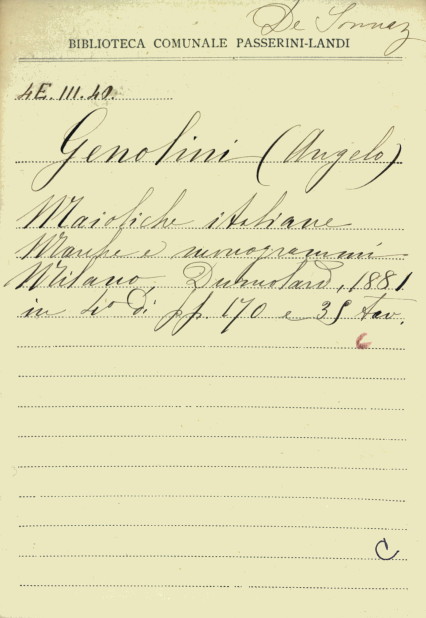 De Sonnaz
BIBLIOTECA COMUNALE PASSERINI-LANDI
4E.III.40.
Genolini (Angelo)
Maioliche italiane
Marche e monogrammi
Milano, Dumolard, 1881
in 4º di pp. 170 e 35 tav.
C
C